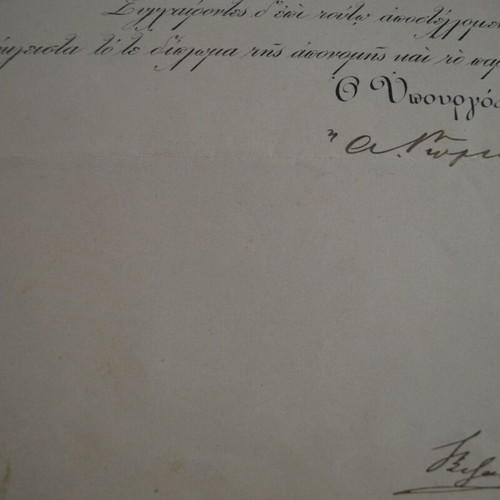 Συγχαίροντες δ' ἐπὶ τούτῳ ἀποστέλλομεν
τό τε δίπλωμα τῆς ἀπονομῆς καὶ τὸ παρ
Ὁ Ὑπουργὸς